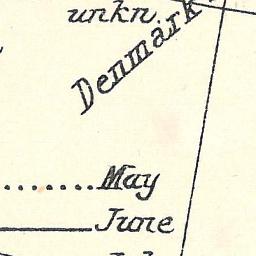 unkn.
Denmark
May
June